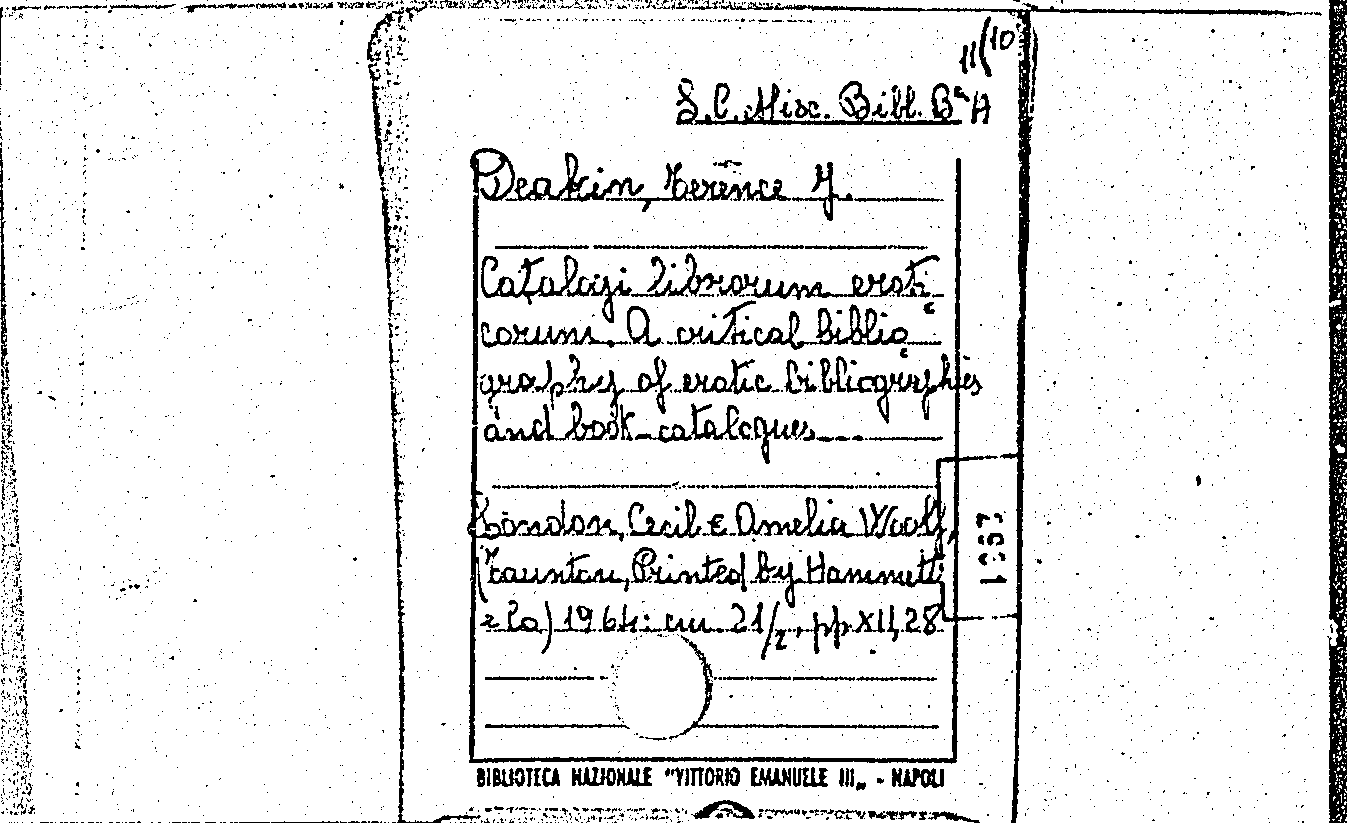 11/10
S.C. Misc. Bibl. Bᵃ A
Deakin, Terence J.
Catalogi librorum eroti-
corum. A critical biblio-
graphy of erotic bibliographies
and book-catalogues
London, Cecil & Amelia Woolf,
(Taunton, Printed by Hammett
& Co) 1964: cm. 21/2, pp. XII, 28
1967
BIBLIOTECA NAZIONALE "VITTORIO EMANUELE III„ - NAPOLI